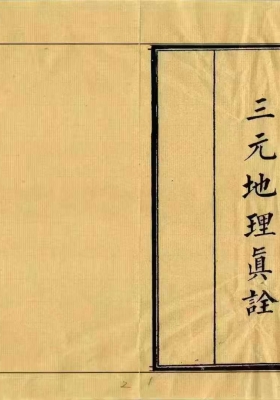 三元地理真詮
2 1